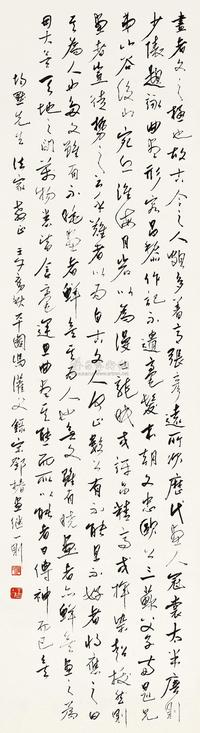 畫者文之極也故古今之人頗多著意張彥遠所次歷代畫人冠裳太半唐則
少陵題詠曲盡形容昌黎作記不遺毫髮本朝文忠歐公三蘇父子兩晁兄
弟山谷後山宛丘淮海月岩以為漫仕龍眠或評品精高或揮染超拔然則
畫者豈獨藝之云乎難者以為自古文人何止數公有不能且不好者將應之曰
其為人也多文雖有不曉畫者鮮矣其為人也無文雖有曉畫者亦鮮矣畫之為
用大矣天地之間萬物悉皆含毫運思曲盡其態而所以能者曰傳神而已矣
均默先生法家教正 壬午 秋平園馮灌父錄宋鄧椿畫繼一則